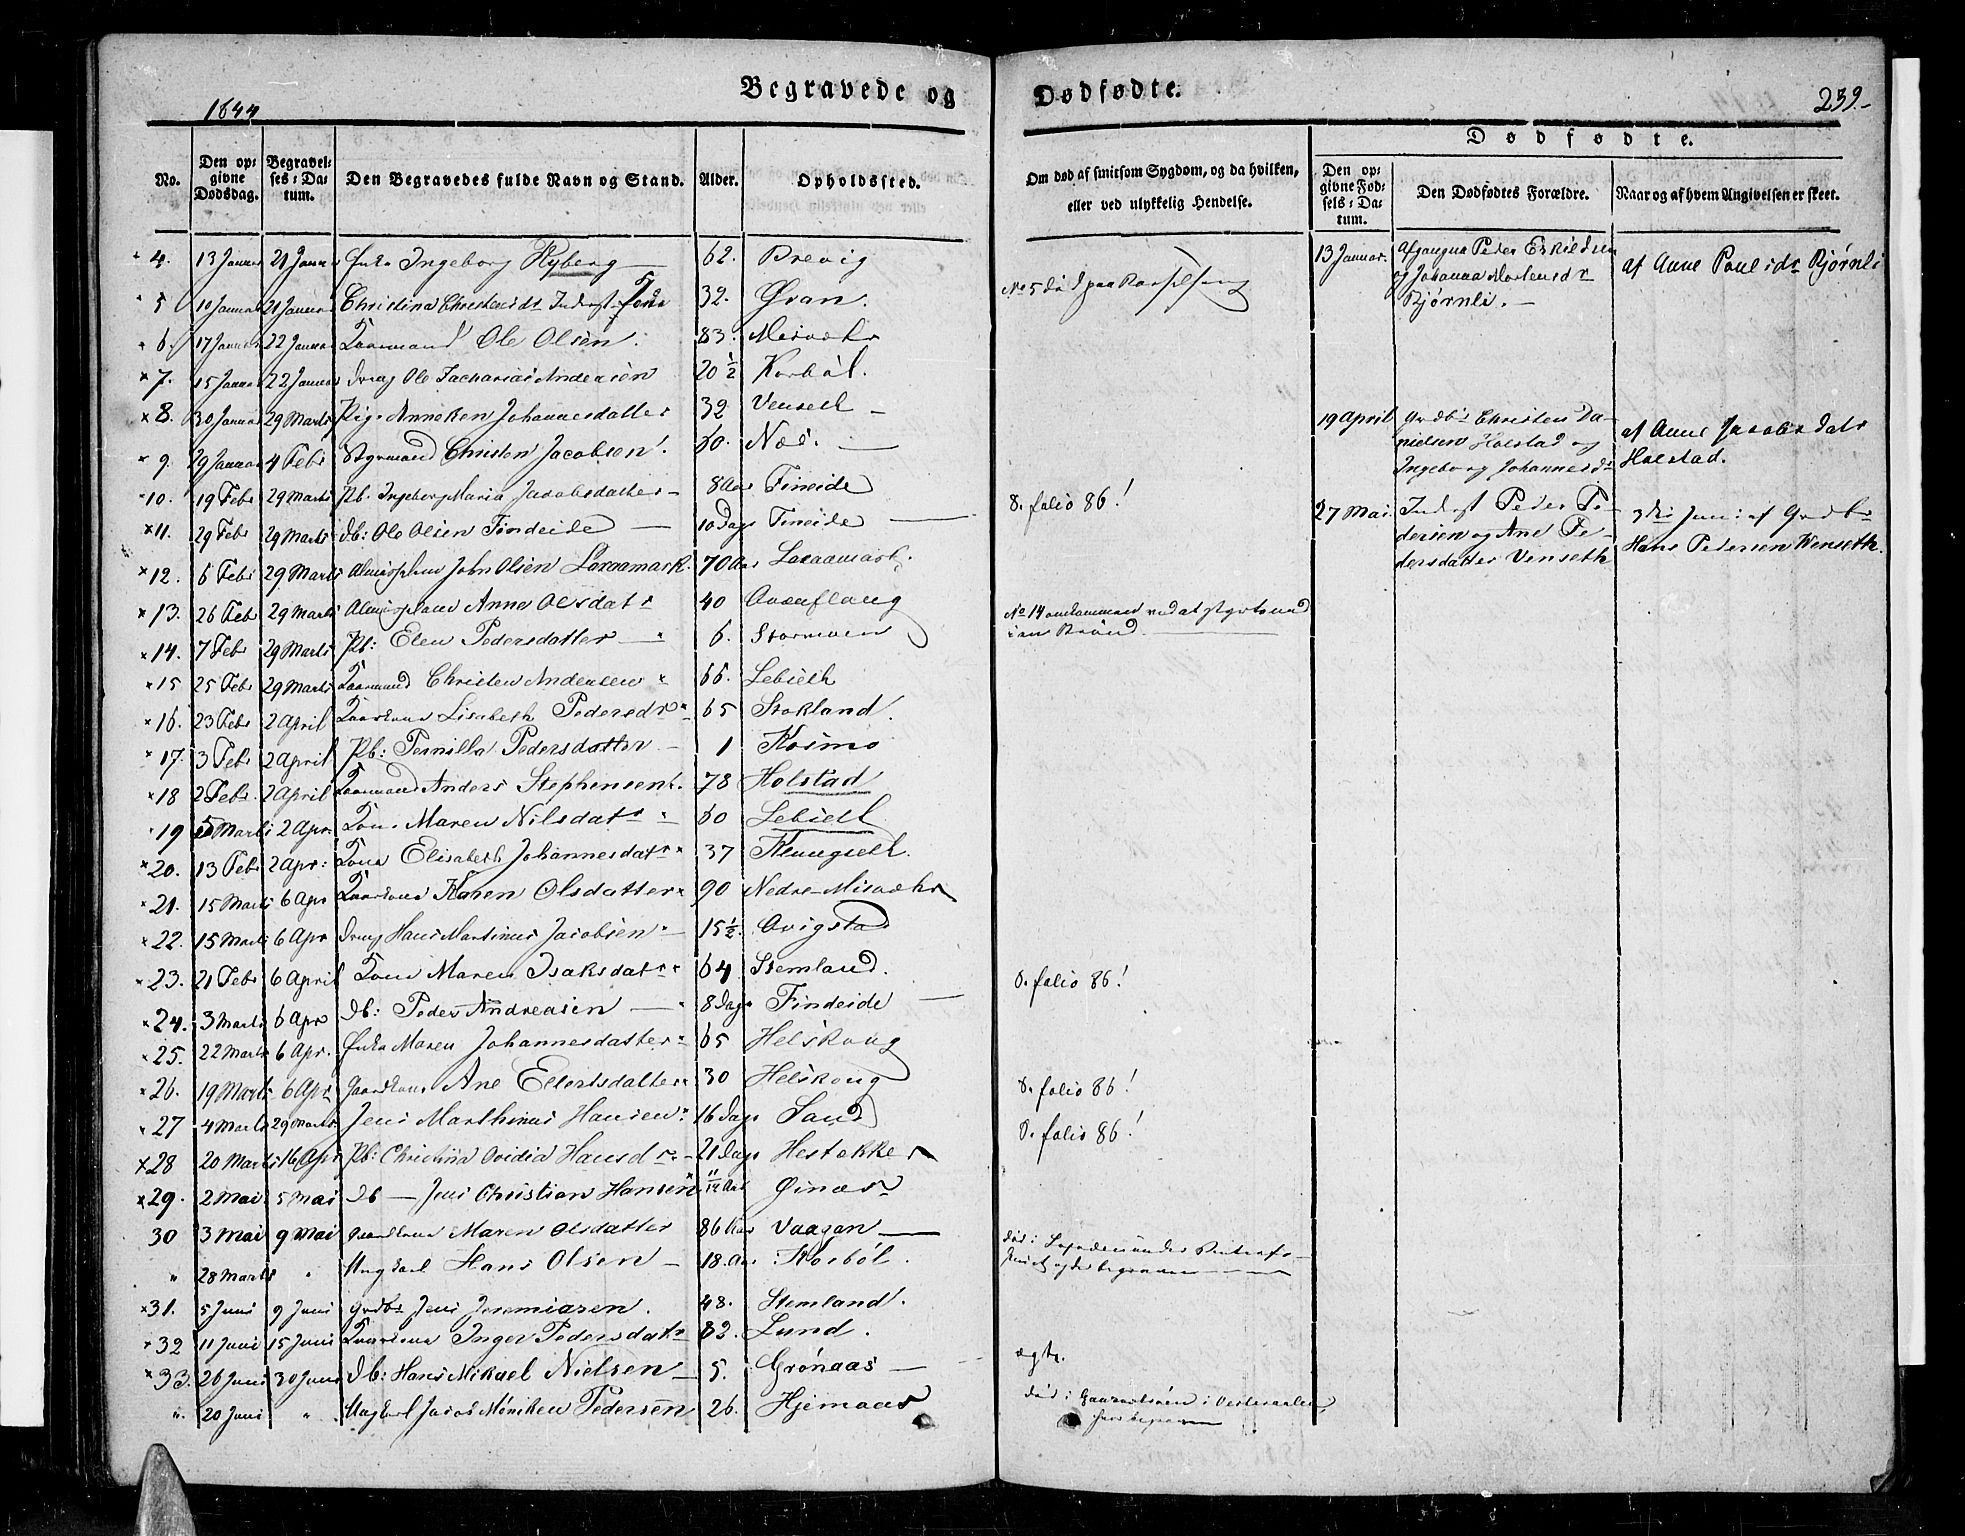 1844
Begravede og Dødfødte.
239.
Dødfødte.
No.
Den opgivne Dødsdag.
Begravelses-Datum.
Den Begravedes fulde Navn og Stand.
Alder.
Opholdssted.
Om død af smitsom Sygdom, og da hvilken, eller ved ulykkelig Hendelse.
Den opgivne Fødsels-Datum.
Den Dødfødtes Forældre.
Naar og af hvem Angivelsen er skeet.
4. 13 Januar 21 Januar Enke Ingeborg Ryberg 62. Brevig
5 10 Januar 21 Januar Christina Christensdr Inderst 32. Øran. No 5 død paa Barselseng
6. 17 Januar 22 Januar Kaarmand Ole Olsen. 83. Misvær
7. 15 Januar 22 Januar Dreng Ole Zacharias Andersen 20 1/2 Korbøl.
8. 30 Januar 29 Marts Pige Anneken Johannesdatter 32 Venseth
9. 29 Januar 4 Febr Styrmand Christen Jacobsen. 60. Næs.
10. 19 Febr 29 Marts Pb. Ingeborg Maria Jacobsdatter 8 Aar Fineide 8. folio 86!
11. 29 Febr 29 Marts Db: Ole Olsen Findeide 10 Dage Fineide
12. 6 Febr 29 Marts John Olsen 70 Aar
13. 26 Feb 29 Marts Anne Olsdatr 40
14. 7 Febr 29 Marts Pb: Elen Pedersdatter 6. Stormoen No 14 omkommen ved at styrte ned i en Brønd.
15 25 Febr 29 Marts Kaarmand Christen Andersen 66. Lebieth
16. 23 Febr 2 April Kaarkone Lisabeth Pedersdr 65 Stokland.
17. 3 Febr 2 April Pb: Pernilla Pedersdatter 1 Kosmo
18 2 Febr. 2 April Kaarmand Anders Stephensen 78 Holstad
19 5 Marts 2 Apr. Kone Maren Nilsdatr 60 Lebieth
20. 13 Febr 2 Apr: Kone Elisabeth Johannesdatr 37 Klungseth.
21. 15 Marts 6 Apr Kaarkone Karen Olsdatter 90 Nedre-Misvær
22. 15 Marts 6 Apr Dreng Hans Martinus Jacobsen 15 1/2. Qvigstad
23. 21 Febr 6 April Kone Maren Isaksdatr 64 Stemland. 8. folio 86!
24. 3 Marts 6 Apr Db: Peder Andreasen 8 Dage Findeide
25. 22 Marts 6 Apr. Enke Maren Johannesdatter 65
26. 19 Marts 6 Apr Gaardkone Ane Ellertsdatter 30 8. folio 86!
27 4 Marts 29 Marts Jens Marthinus Hansen 16 Dage Sand 8. folio 86!
28 20 Marts 16 Apr Pb: Christina Ovidia Hansdr 21 Dage
29. 2 Mai 5 Mai Db Jens Christian Hansen 11/12 Aar Øinæs
30 3 Mai 9 Mai Gaardkone Maren Olsdatter 86 Aar Vaagan
" 28 Marts " Ungkarl Hans Olsen 18. Aar Korbøl. død i Lofoden under
31. 5 Juni 9 Juni Grdbr Jens Jeremiasen. 48. Stemland.
32 11 Juni 15 Juni Kaarkone Inger Pedersdatr 82. Lund.
33. 26 Juni 30 Juni Db: Hans Mikael Nielsen 5. Grønaas ægte.
". 20 Juni " Ungkarl Jacob Mønniken Pedersen 26. Hjemaas død i i Vesteraalen,
13 Januar. Afgangne Peder Eskildsen og Johanna Mortensdr Bjørnli. af Anne Poulsdr Bjørnli
19 April Grdbr Christen Danielsen Holstad og Ingeborg Johannesdr af Anne Jacobsdatr Holstad.
27 Mai. Inderst Peder Pedersen og Ane Pedersdatter Venseth 3die Juni af Grdbr Hans Pedersen Wenseth.